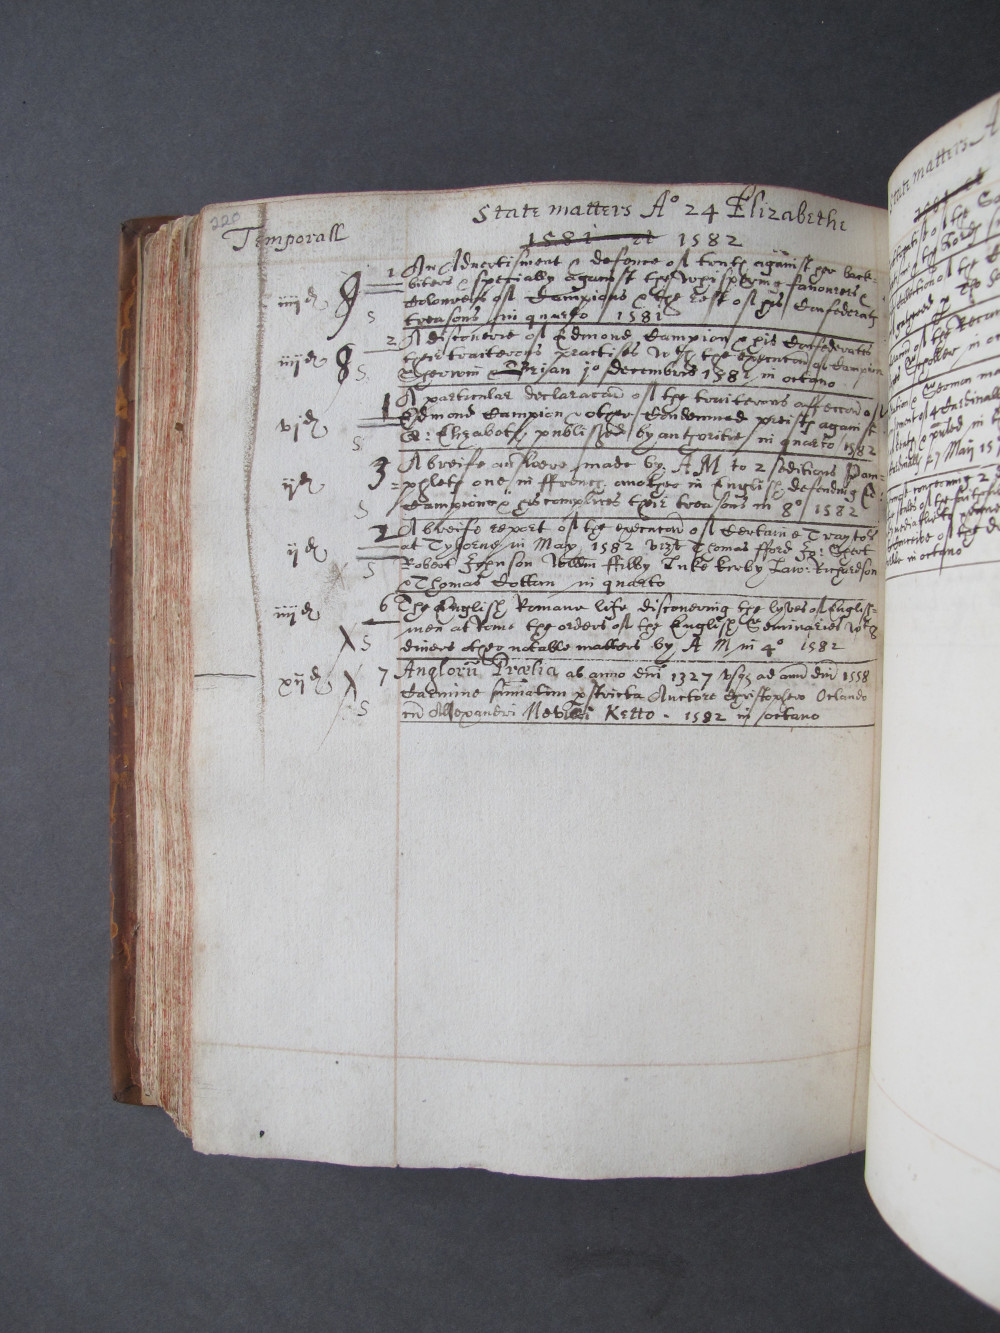 220
State matters Aº 24 Elizabethe
Temporall
1581 et 1582
iiijd 9 1 An Advertisment & defence of truth against her back-
biters & specially against the whispering favourers &
S Colourers of Campians & the rest of his Confederats
treasons in quarto 1581
iiijd 8 2 A discoverie of Edmond Campion & his Confederates
their traiterous practises wth the execucon of Campion
S Sherwin & Brian jº decembris 1582 in octavo
vjd 1 A particular declaracon of the traiterous affeccon of
Edmond Campion & other Condemned preists against
S Q: Elizabeth, published by authoritie in quarto 1582
ijd 3 A breife answere made by A M to 2 seditious Pam-
phlets one in ffrench another in English defending Ed:
S Campion & his complices their treasons in 8º 1582
ijd 2 A breife report of the execucon of Certaine Traytors
at Tyborne in May 1582 vizt Thomas fford Jo: Shert
S Robert Johnson Willm ffilby Luke Kirby Law: Richardson
& Thomas Cottam in quarto
iiijd 6 The English Romane life discovering the lyves of English-
men at Rome the orders of the English Seminaries wth
S divers other notable matters by A M in 4º 1582
xijd 7 Anglorū Prælia ab anno dni 1327 usqz ad anū dni 1558
Carmine sumatim pstricta Auctore Christophero Oclando
S cū Allexandri Nevilli Ketto - 1582 in octavo
State matters A